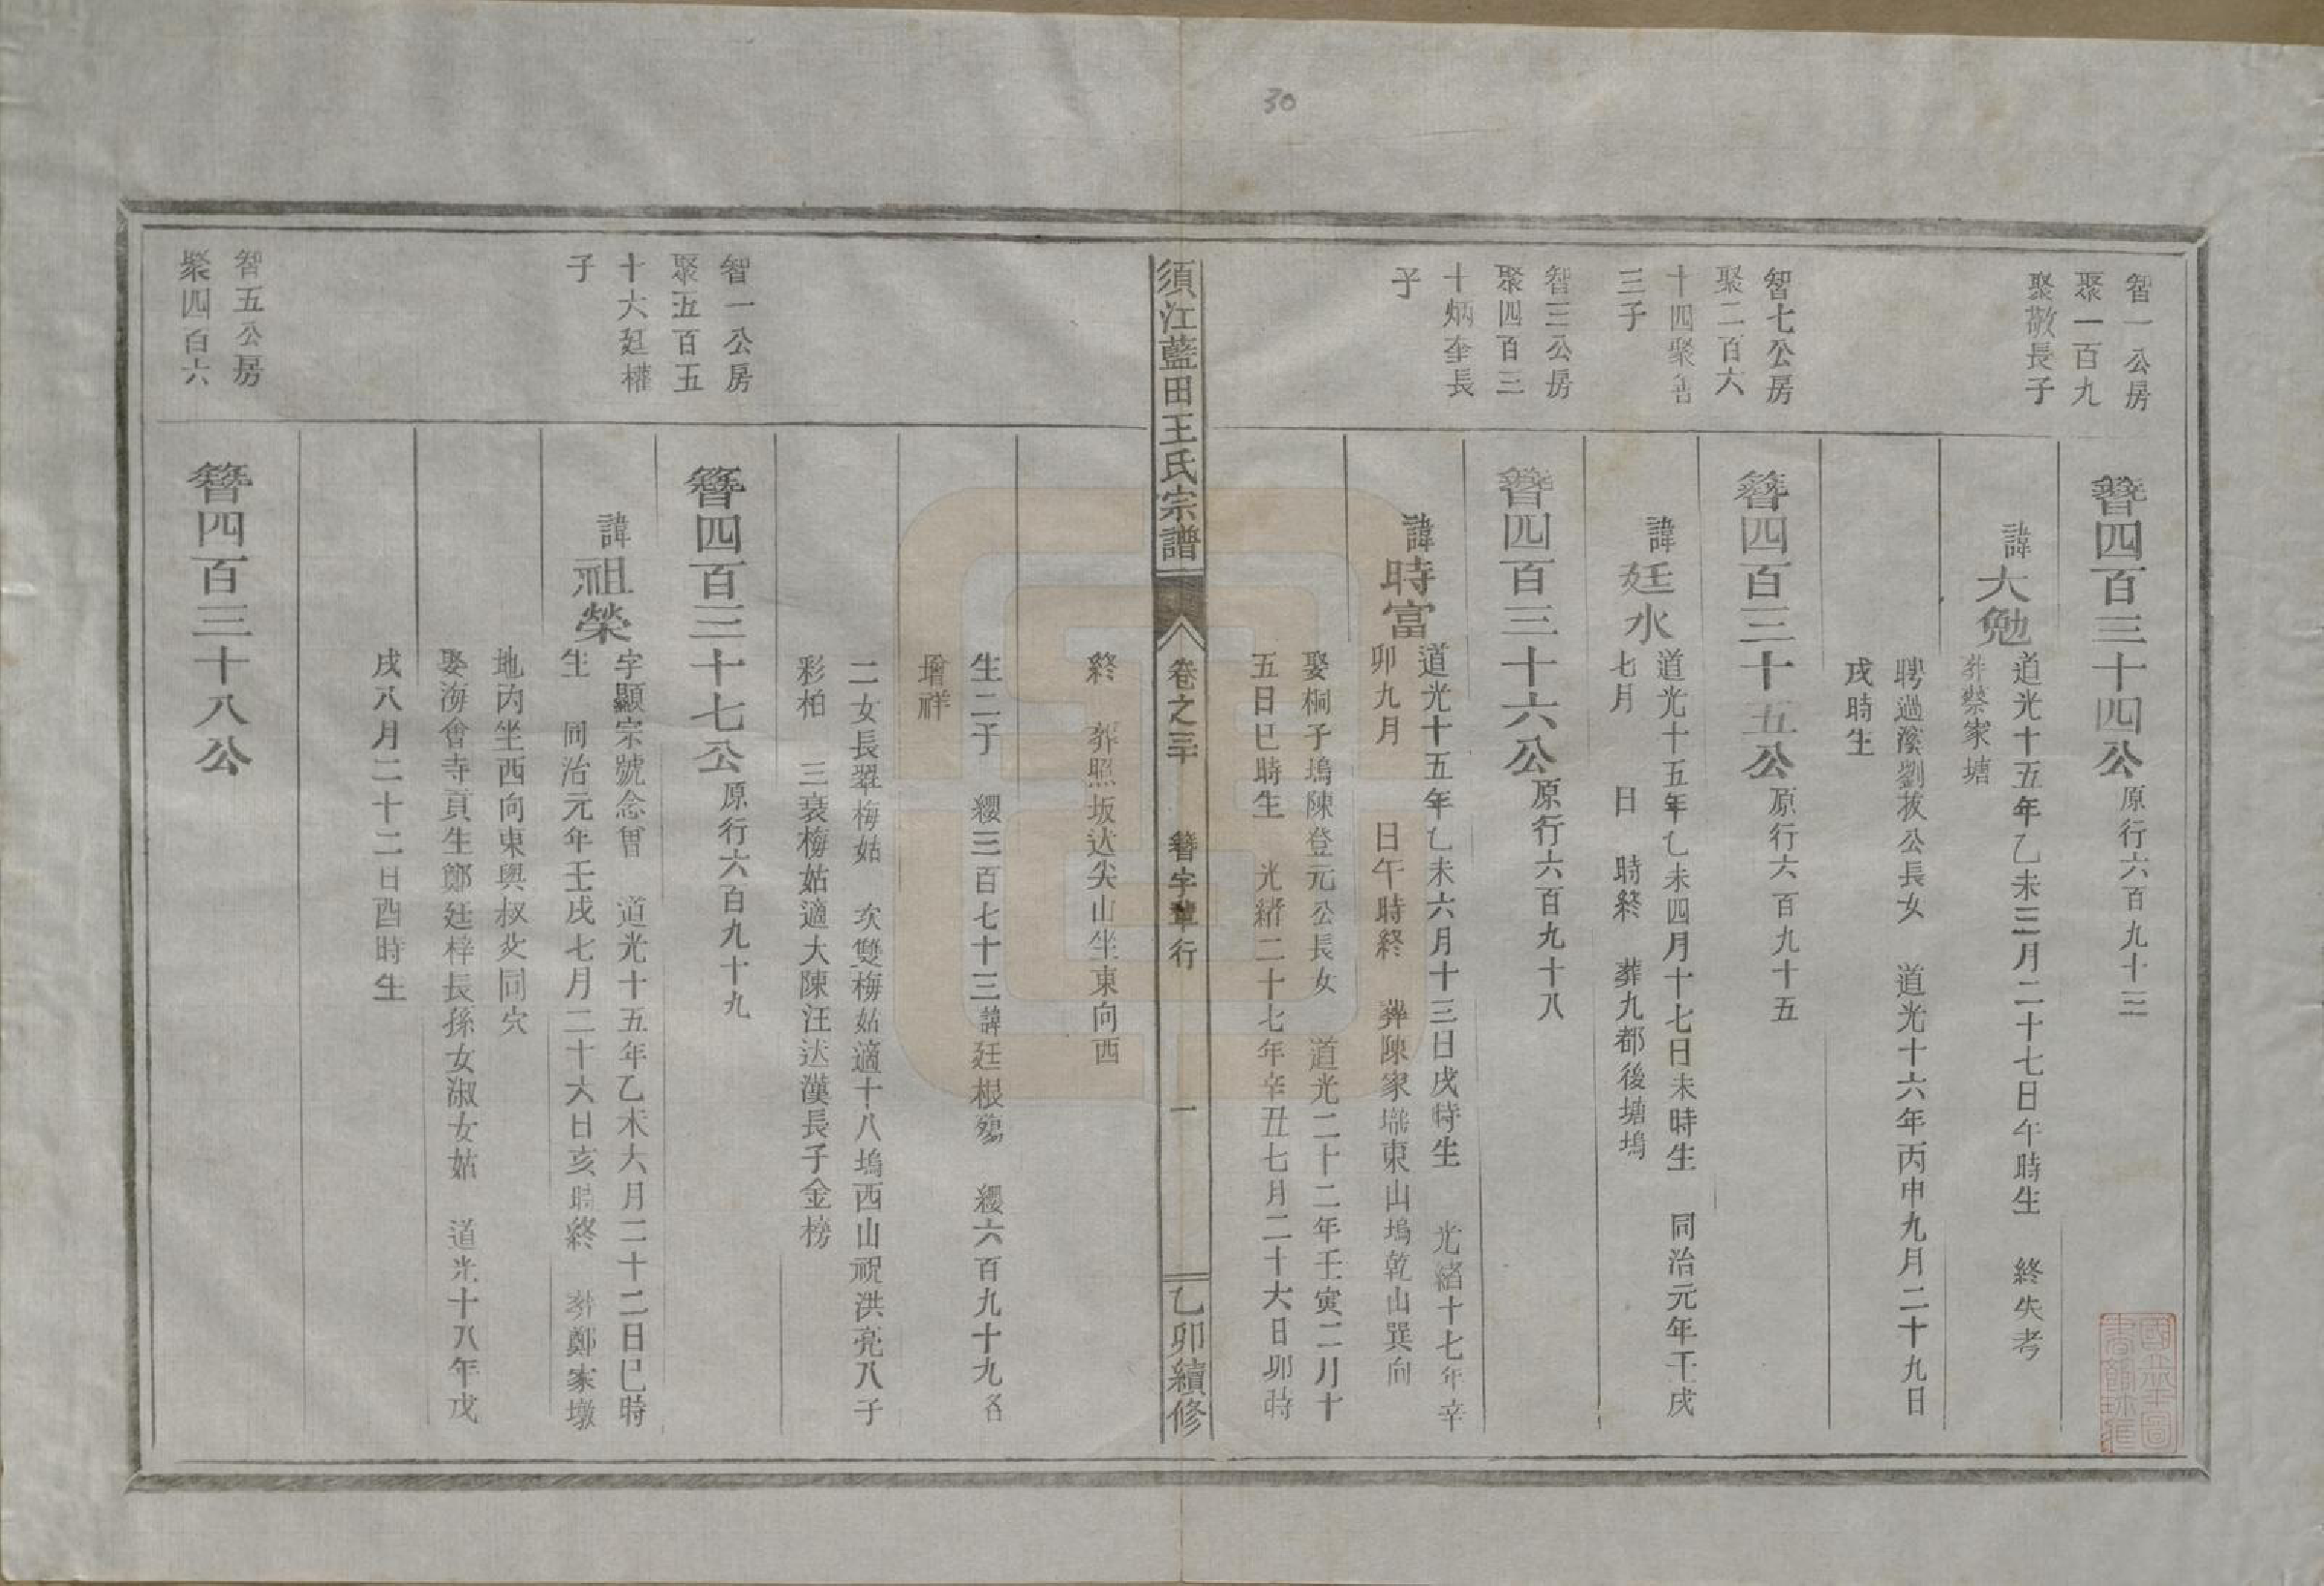 30
智一公房
聚一百九
聚敬長子
簪四百三十四公原行六百九十三
諱大勉
道光十五年乙未三月二十七日午時生 終失考
葬蔡家塘
聘過溪劉拔公長女 道光十六年丙申九月二十九日
戌時生
智七公房
聚二百六
十四聚善
三子
簪四百三十五公原行六百九十五
諱廷水
道光十五年乙未四月十七日未時生 同治元年壬戌
七月 日 時終 葬九都後塘塢
智三公房
聚四百三
十炳奎長
子
簪四百三十六公原行六百九十八
諱時富
道光十五年乙未六月十三日戌時生 光緒十七年辛
卯九月 日午時終 葬陳家壠東山塢乾山巽向
娶桐子塢陳登元公長女 道光二十二年壬寅二月十
五日巳時生 光緒二十七年辛丑七月二十六日卯時
須江藍田王氏宗譜
卷之三十 簪字輩行 一
乙卯續修
終 葬照坂达尖山坐東向西
生二子 纓三百七十三諱廷根殤 纓六百九十九名
增祥
二女長翠梅姑 次雙梅姑適十八塢西山祝洪亮八子
彩柏 三衰梅姑適大陳汪达漢長子金榜
智一公房
聚五百五
十六廷權
子
簪四百三十七公原行六百九十九
諱祖榮
字顯宗號念曾 道光十五年乙未六月二十二日巳時
生 同治元年壬戌七月二十六日亥時終 葬鄭家墩
地內坐西向東與叔父同穴
娶海會寺貢生鄭廷梓長孫女淑女姑 道光十八年戊
戌八月二十二日酉時生
智五公房
聚四百六
簪四百三十八公